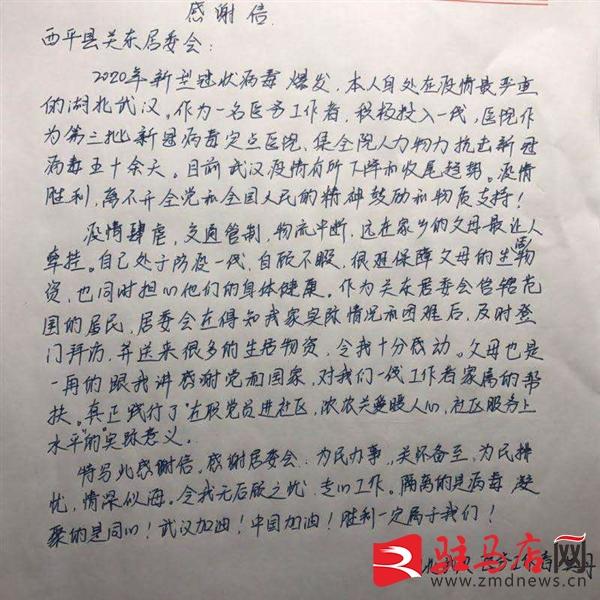 感谢信
西平县关东居委会：
2020年新型冠状病毒爆发，本人身处在疫情最严重
的湖北武汉。作为一名医务工作者，积极投入一线，医院作
为第三批新冠病毒定点医院，集全院人力物力抗击新冠
病毒五十余天。目前武汉疫情有所下降和收尾趋势。疫情
胜利，离不开全党和全国人民的精神鼓励和物质支持！
疫情肆虐，交通管制，物流中断，远在家乡的父母最让人
牵挂。自己处于防疫一线，自顾不暇，很难保障父母的生活物
资，也同时担心他们的身体健康。作为关东居委会管辖范
围的居民，居委会在得知我家实际情况和困难后，及时登
门拜访，并送来很多的生活物资，令我十分感动。父母也是
一再的跟我讲感谢党和国家，对我们一线工作者家属的帮
扶。真正践行了"在职党员进社区，浓浓关爱暖人心，社区服务上
水平"的实际意义。
特写此感谢信，感谢居委会：为民办事，关怀备至，为民排
忧，情深似海。令我无后顾之忧，专心工作。隔离的是病毒 凝
聚的是同心！武汉加油！中国加油！胜利一定属于我们！
驻马店网
www.zmdnews.cn